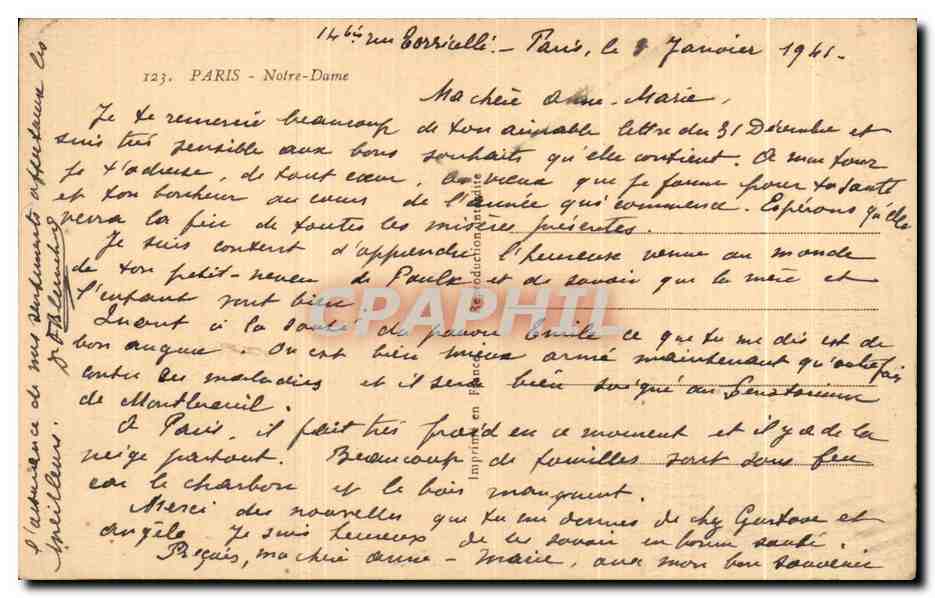 14bis rue Torricelli - Paris, le Janvier 1941.
123. PARIS - Notre-Dame
Ma chère Anne-Marie,
Je te remercie beaucoup de ton aimable lettre du 31 Décembre et
suis très sensible aux bons souhaits qu'elle contient. A mon tour
je t'adresse, de tout coeur, les voeux que je forme pour ta santé
et ton bonheur au cours de l'année qui commence. Espérons qu'elle
verra la fin de toutes les misères présentes.
Je suis content d'apprendre l'heureuse venue au monde
de ton petit-neveu de et de savoir que la mère et
l'enfant vont bien
Quant à la santé du pauvre Emile ce que tu me dis est de
bon augure. On est bien mieux armé maintenant qu'autrefois
contre ces maladies et il sera bien soigné au Sanatorium
de Montbreuil.
A Paris, il fait très froid en ce moment et il y a de la
neige partout. Beaucoup de familles sont sans feu
car le charbon et le bois manquent.
Merci des nouvelles que tu me donnes de chez Gustave et
Angèle. Je suis heureux de les savoir en bonne santé.
Reçois, ma chère Anne-Marie, avec mon bon souvenir
l'assurance de mes sentiments affectueux les
meilleurs.
Imprimé en France Reproduction interdite
CPAPHIL